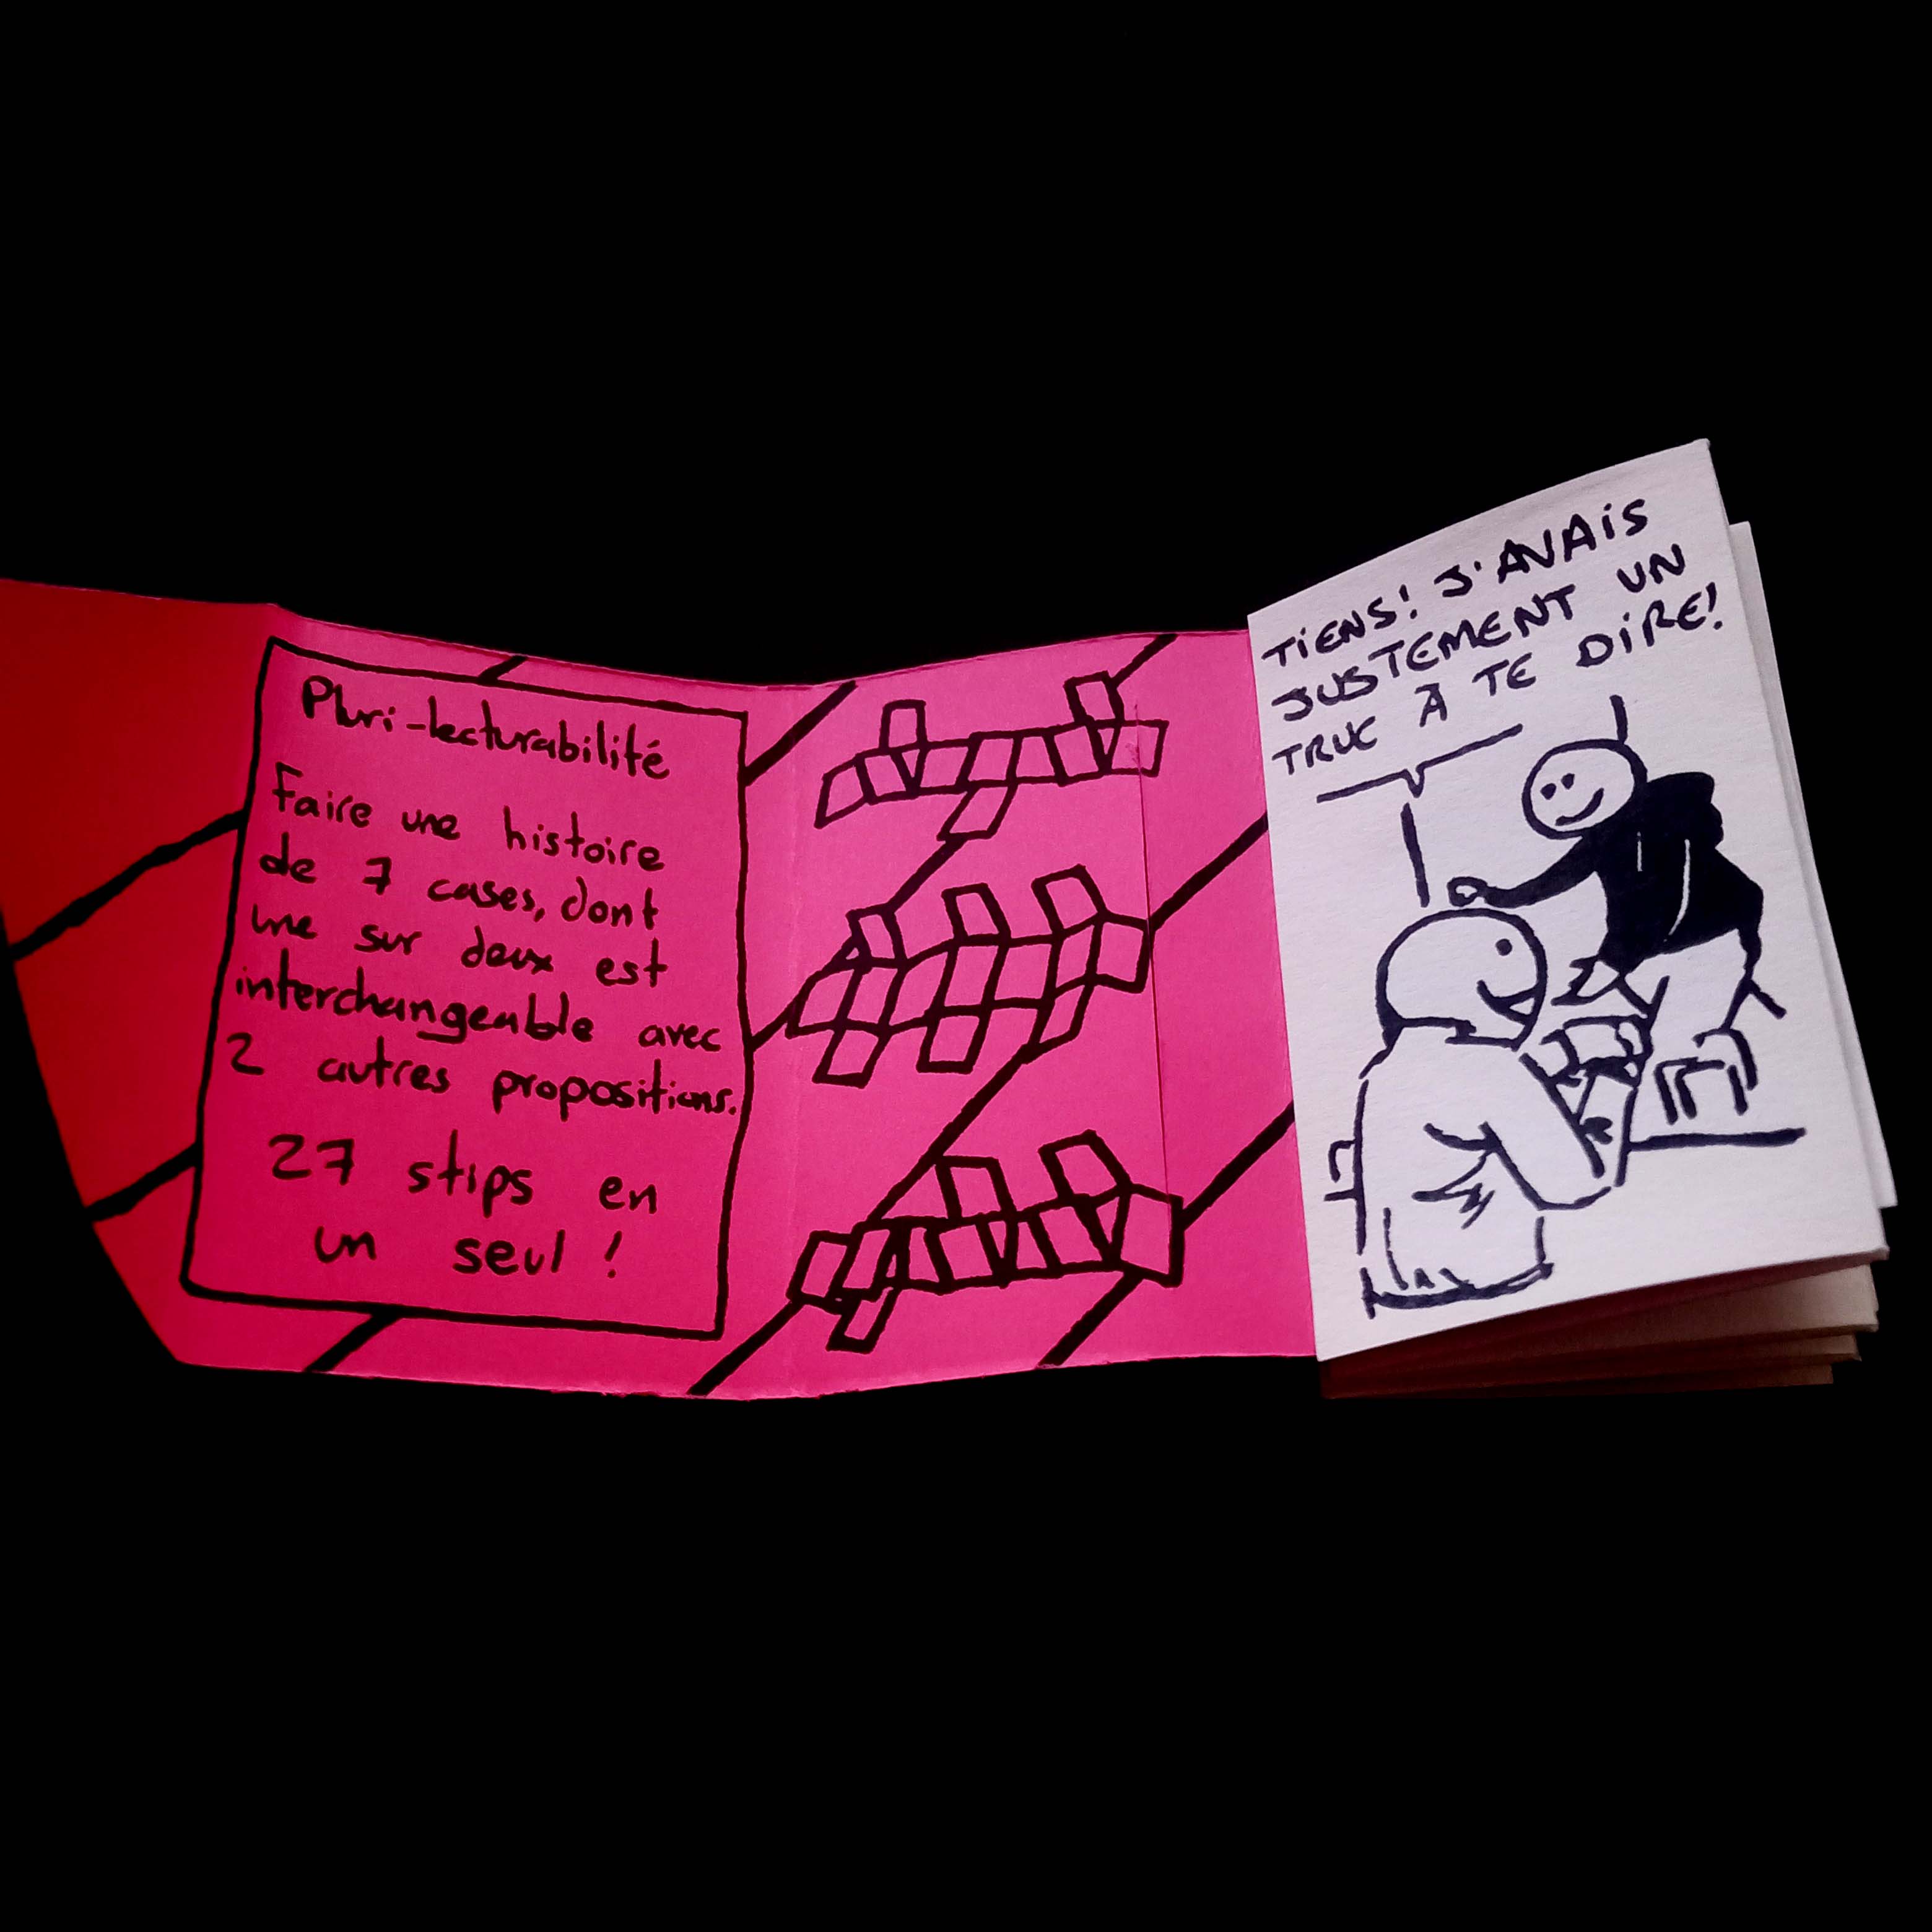 Pluri-lecturabilité
Faire une histoire
de 7 cases, dont
une sur deux est
interchangeable avec
2 autres propositions.
27 stips en
un seul !
TIENS! J'AVAIS
JUSTEMENT UN
TRUC À TE DIRE!